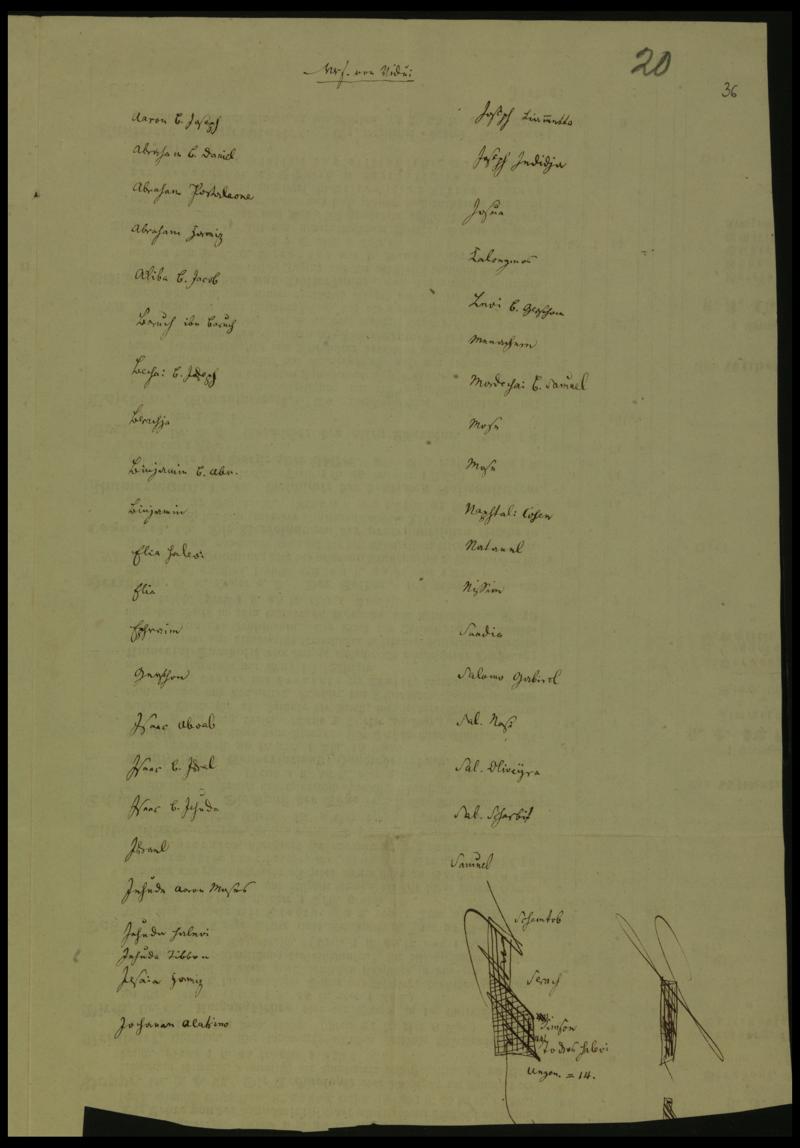 20
36
Verf. von Widui
Aaron b. Joseph
Abraham b. Daniel
Abraham Portaleone
Abraham Hamiz
Akiba b. Jacob
Baruch ibn Baruch
Bechai b. Joseph
Berachja
Binjamin b. Abr.
Binjamin
Elia Halevi
Elia
Ephraim
Gerschon
Isaac Aboab
Isaac b. Israel
Isaac b. Jehuda
Israel
Jehuda Aaron Moses
Jehuda Halevi
Jehuda Tibbon
Jesaia Hamiz
Jochanan Alatrino
Joseph
Joseph Jedidja
Josua
Kalonymos
Levi b. Gerschom
Menachem
Mordechai b. Samuel
Mose
Mose
Naphtali Cohen
Natanel
Nissim
Saadia
Salomo Gabirol
Sal. Nasi
Sal. Oliveyra
Sal. Scharbit
Samuel
Schemtob
Serach
Simson
Todros Halevi
Ungen. = 14.